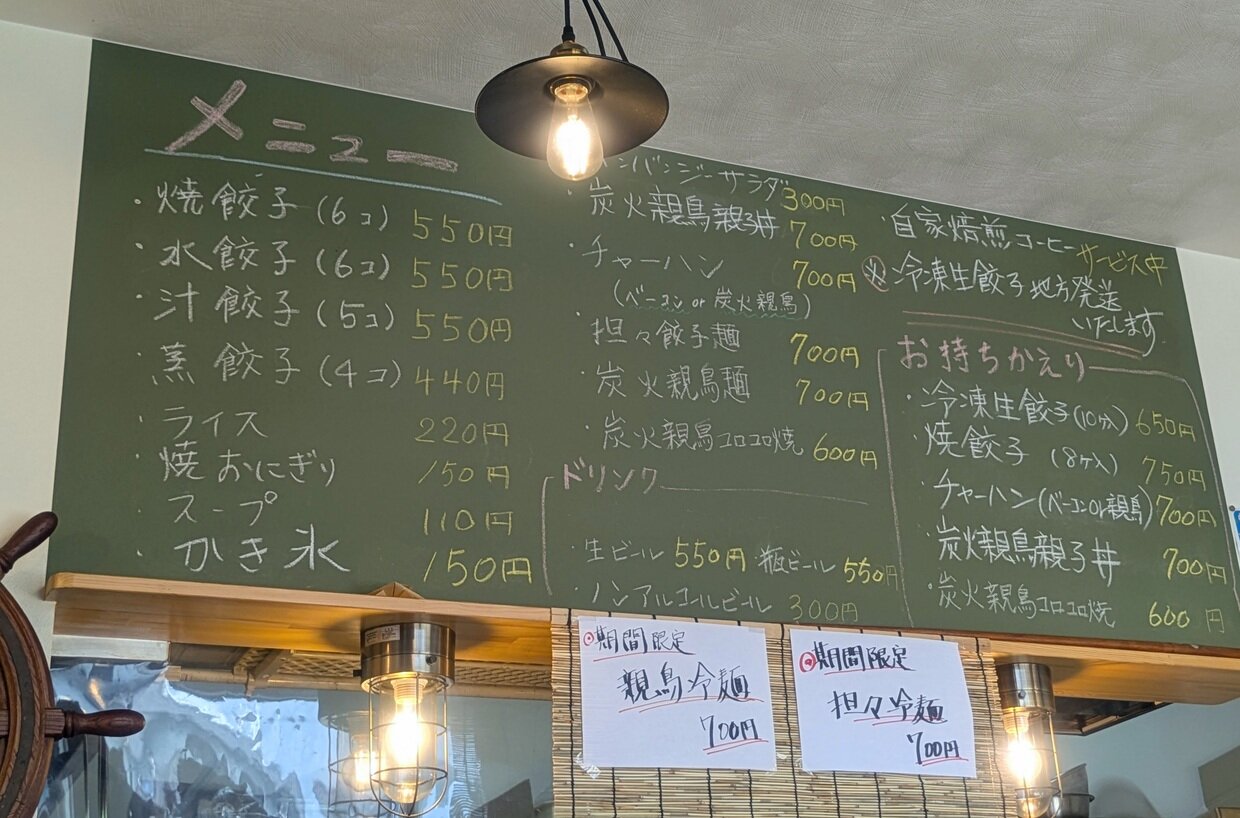 メニュー
・焼餃子(6コ) 550円
・水餃子(6コ) 550円
・汁餃子(5コ) 550円
・蒸餃子(4コ) 440円
・ライス 220円
・焼おにぎり 150円
・スープ 110円
・かき氷 150円
バンバンジーサラダ 300円
・炭火親鳥親子丼 700円
・チャーハン 700円
(ベーコン or 炭火親鳥)
・担々餃子麺 700円
・炭火親鳥麺 700円
・炭火親鳥コロコロ焼 600円
ドリンク
・生ビール 550円 瓶ビール 550円
・ノンアルコールビール 300円
・自家焙煎コーヒーサービス中
※冷凍生餃子地方発送
いたします
お持ちかえり
・冷凍生餃子(10ケ入) 650円
・焼餃子(8ケ入) 750円
・チャーハン(ベーコンor親鳥) 700円
・炭火親鳥親子丼 700円
・炭火親鳥コロコロ焼 600円
◎期間限定
親鳥冷麺
700円
◎期間限定
担々冷麺
700円